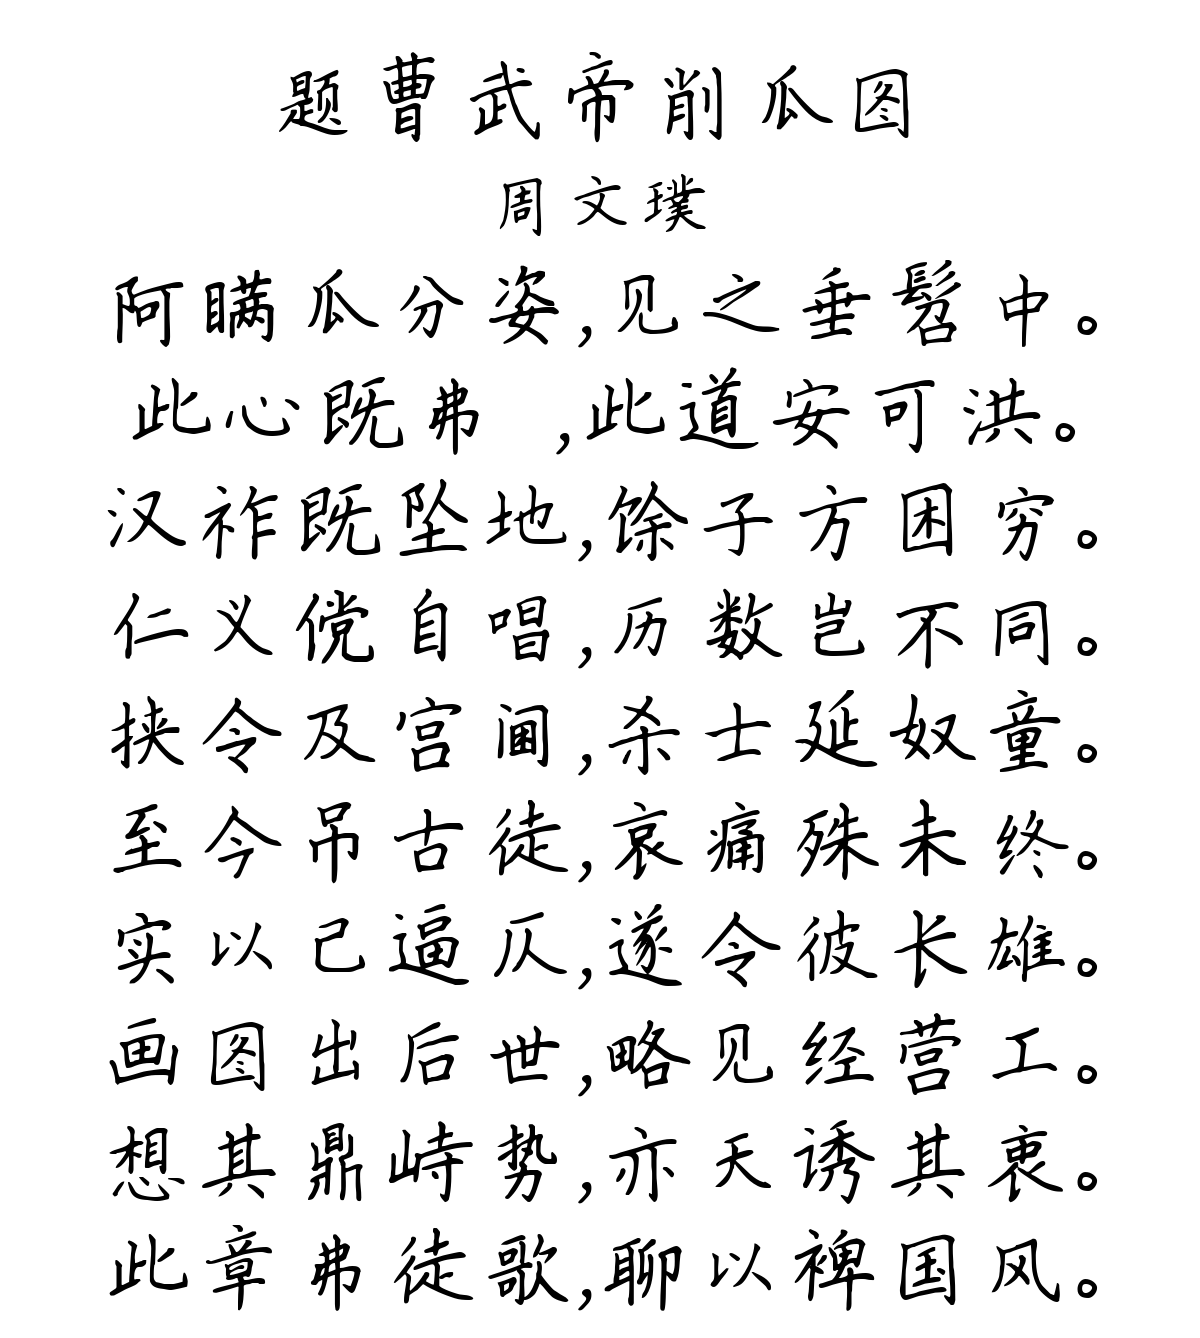 题曹武帝削瓜图
周文璞
阿瞒瓜分姿,见之垂髫中。
此心既弗 ,此道安可洪。
汉祚既坠地,馀子方困穷。
仁义傥自唱,历数岂不同。
挟令及宫阃,杀士延奴童。
至今吊古徒,哀痛殊未终。
实以己逼仄,遂令彼长雄。
画图出后世,略见经营工。
想其鼎峙势,亦天诱其衷。
此章弗徒歌,聊以裨国风。